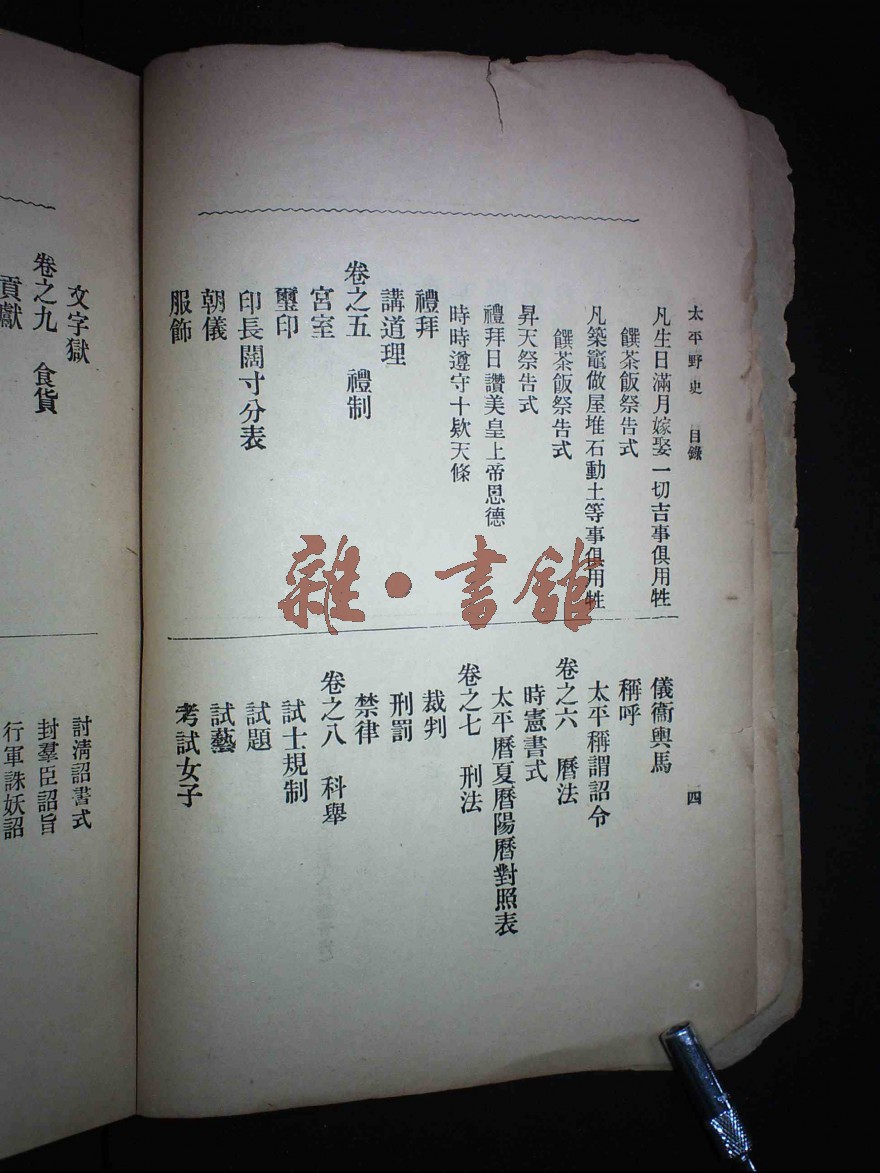 太平野史 目錄 四
凡生日滿月嫁娶一切吉事俱用牲
饌茶飯祭告式
凡築竈做屋堆石動土等事俱用牲
饌茶飯祭告式
昇天祭告式
禮拜日讚美皇上帝恩德
時時遵守十欵天條
禮拜
講道理
卷之五 禮制
宮室
璽印
印長闊寸分表
朝儀
服飾
儀衞輿馬
稱呼
太平稱謂詔令
卷之六 曆法
時憲書式
太平曆夏曆陽曆對照表
卷之七 刑法
裁判
刑罰
禁律
卷之八 科舉
試士規制
試題
試藝
考試女子
文字獄
卷之九 食貨
貢獻
討清詔書式
封羣臣詔旨
行軍誅妖詔
雜·書館